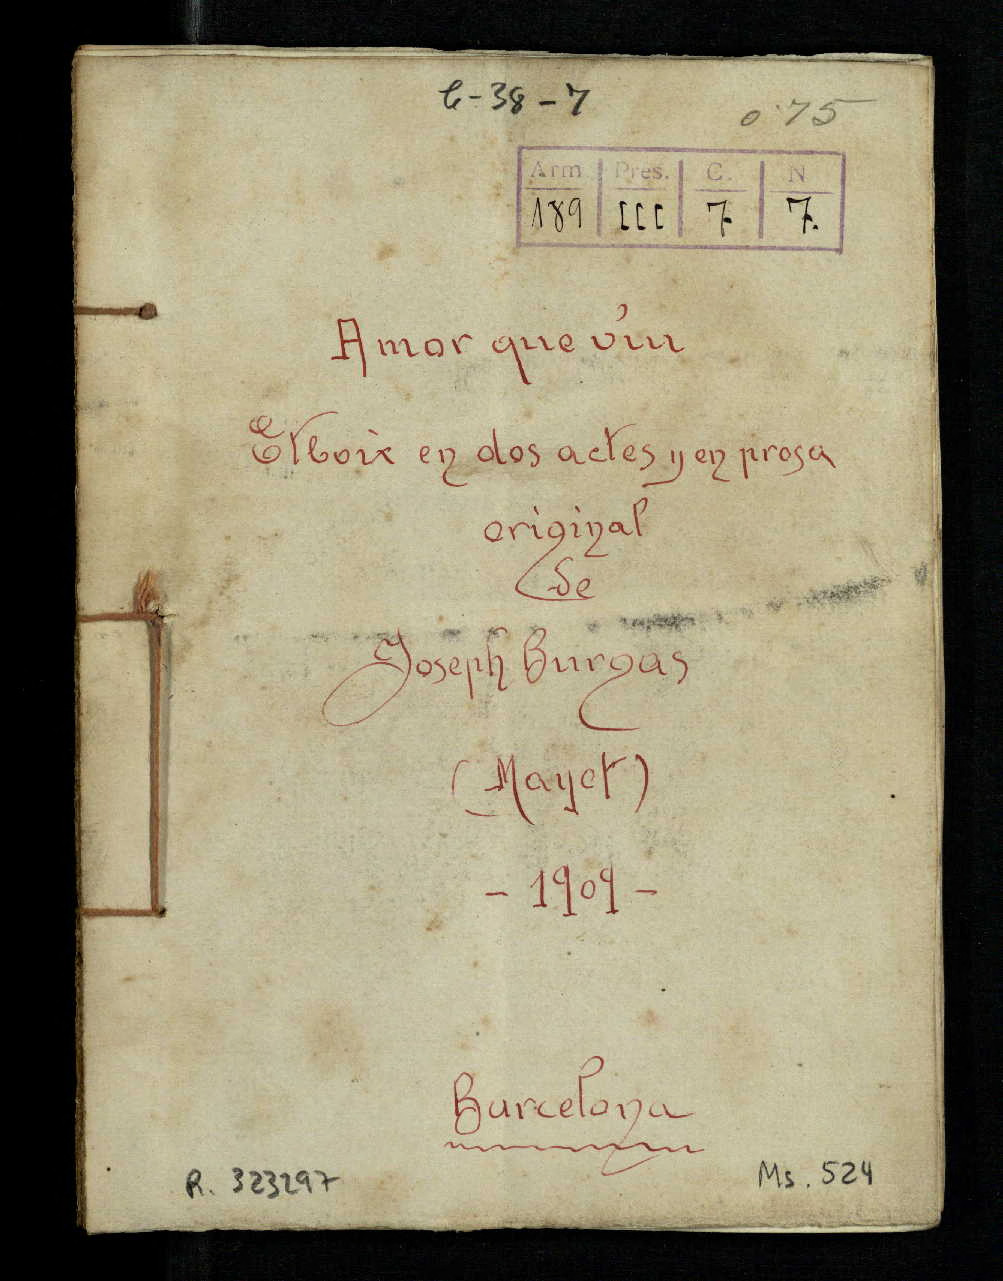 6-38-7
0'75
Arm Pres. C. N
189 III 7. 7.
Amor que viu
Esboix en dos actes y en prosa
original
de
Joseph Burgas
(Mayet)
- 1909 -
Barcelona
R. 323297
Ms. 524